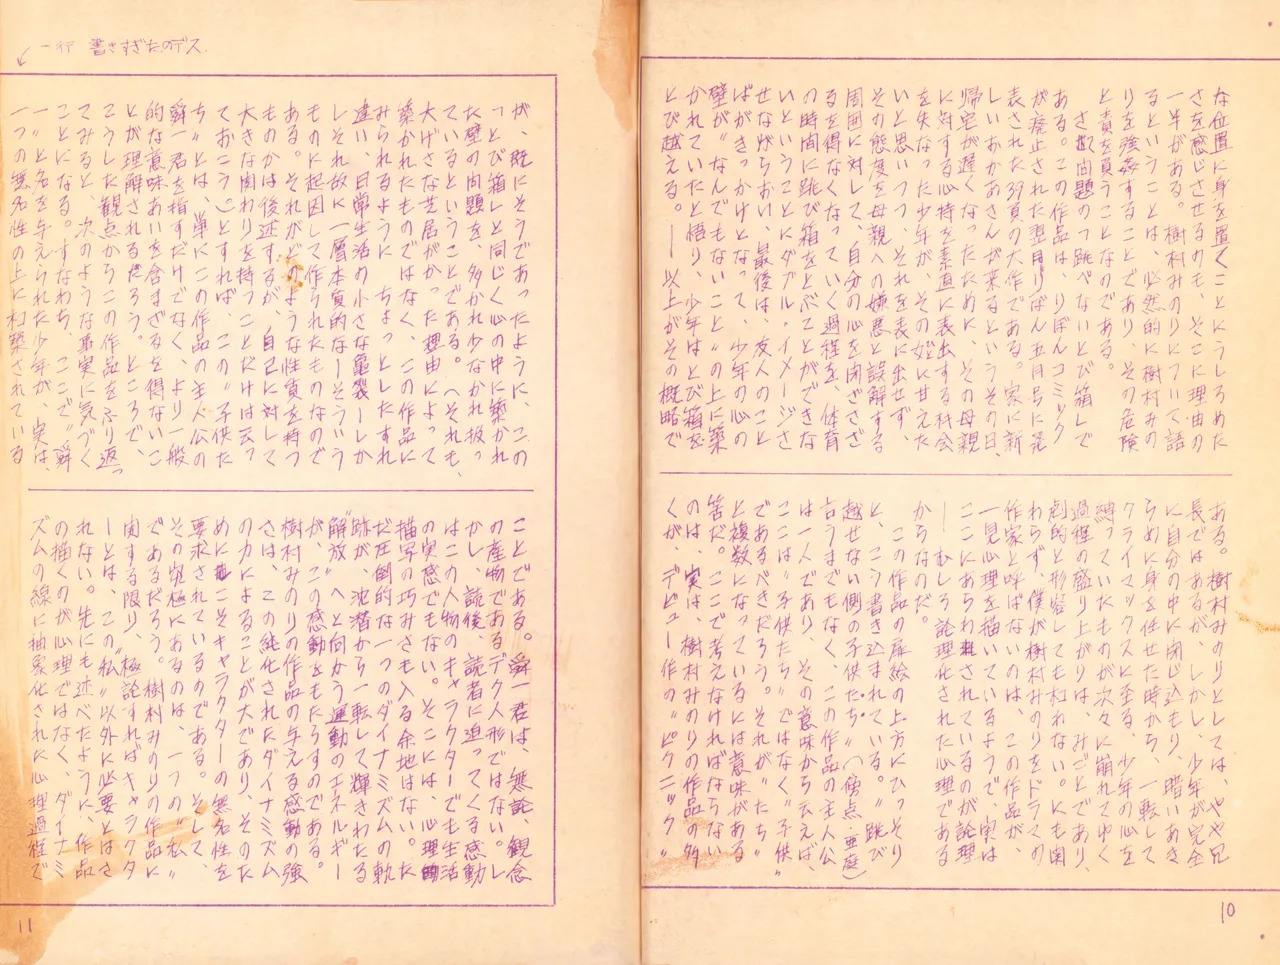 な位置に身を置くことにうしろめた
さを感じさせるのも、そこに理由の
一半がある。樹村みのりについて語
るということは、必然的に樹村みの
りを強姦することであり、その危険
と責を負うことなのである。
さて問題の『跳べないとび箱』で
ある。この作品は、りぼんコミック
が廃止された翌月りぼん五月号に発
表された39頁の大作である。家に新
しいおかあさんが来るというその日、
帰宅が遅くなったために、その母親
に対する心持を素直に表出する機会
を失なった少年が、その妃に甘えた
いと思いつつ、それを表に出せず、
その態度を母親への嫌悪と誤解する
周囲に対して、自分の心を閉ざさざ
るを得なくなっていく過程を、体育
の時間に跳び箱をとぶことができな
いということにダブル・イメージさ
せながらおい、最後は、友人のこと
ばがきっかけとなって、少年の心の
壁が〝なんでもないこと〟の上に築
かれていたと悟り、少年はとび箱を
とび越える。――以上がその概略で
ある。樹村みのりとしては、やや冗
長ではあるが、少年が完全
に自分の中に閉じ込もり、暗いあき
らめに身を任せた時から、一転して
クライマックスに至る、少年の心を
縛っていたものが次々に崩れてゆく
過程の盛り上がりは、みごとであり、
劇的と形容しても構わない。にも関
わらず、僕が樹村みのりをドラマの
作家と呼ばないのは、この作品が、
一見心理を描いているようで、実は
ここにあらわされているのが論理
――むしろ論理化された心理である
からなのだ。
この作品の扉絵の上方にひっそり
と、こう書き込まれている。〝跳び
越せない側の子供たち〟(傍点・亜庭)
言うまでもなく、この作品の主人公
は一人であり、その意味から云えば、
ここは〝子供たち〟ではなく〝子供〟
であるべきだろう。それが〝たち〟
と複数になっているには意味がある
筈だ。ここで考えなければならない
のは、実は、樹村みのりの作品の多
くが、デビュー作の〝ピクニック〟
10
一行 書きすぎたのデス.
が、既にそうであったように、この
〝とび箱〟と同じく心の中に築かれ
た壁の問題を、多かれ少なかれ扱っ
ているということである。(それも、
大げさな芝居がかった理由によって
築かれたものではなく、この作品に
みられるように、ちょっとしたすれ
違い、日常生活の小さな亀裂――しか
しそれ故に一層本質的な――そういう
ものに起因して作られたものなので
ある。それがどのような性質を持つ
ものかは後述するが、自己に対して
大きな関わりを持つことだけは云っ
ておこう。)とすれば、この〝子供た
ち〟とは、単にこの作品の主人公の
舜一君を指すだけでなく、より一般
的な意味あいを含まざるを得ないこ
とが理解されるだろう。ところで、
こうした観点からこの作品をふり返っ
てみると、次のような事実に気づく
ことになる。すなわち、ここで〝舜
一〟と名を与えられた少年が、実は、
一つの無名性の上に構築されている
ことである。舜一君は、無論、観念
の産物であるデク人形ではない。し
かし、読後、読者に迫ってくる感動
はこの人物のキャラクターでも生活
の実感でもない。そこには、心理的
描写の巧みさも入る余地はない。た
だ圧倒的な一つのダイナミズムの軌
跡が、沈潜から一転して輝きわたる
〝解放〟へと向かう運動のエネルギー
が、この感動をもたらすのである。
樹村みのりの作品の与える感動の強
さは、この純化されたダイナミズム
の力によることが大であり、そのた
めにこそキャラクターの無名性を
要求されているのである。そして、
その究極にあるのは、一つの〝私〟
であるだろう。樹村みのりの作品に
関する限り、極論すればキャラクタ
ーとは、この〝私〟以外に必要とはさ
れない。先にも述べたように、作品
の描くのが心理ではなく、ダイナミ
ズムの線に抽象化された心理過程で
11